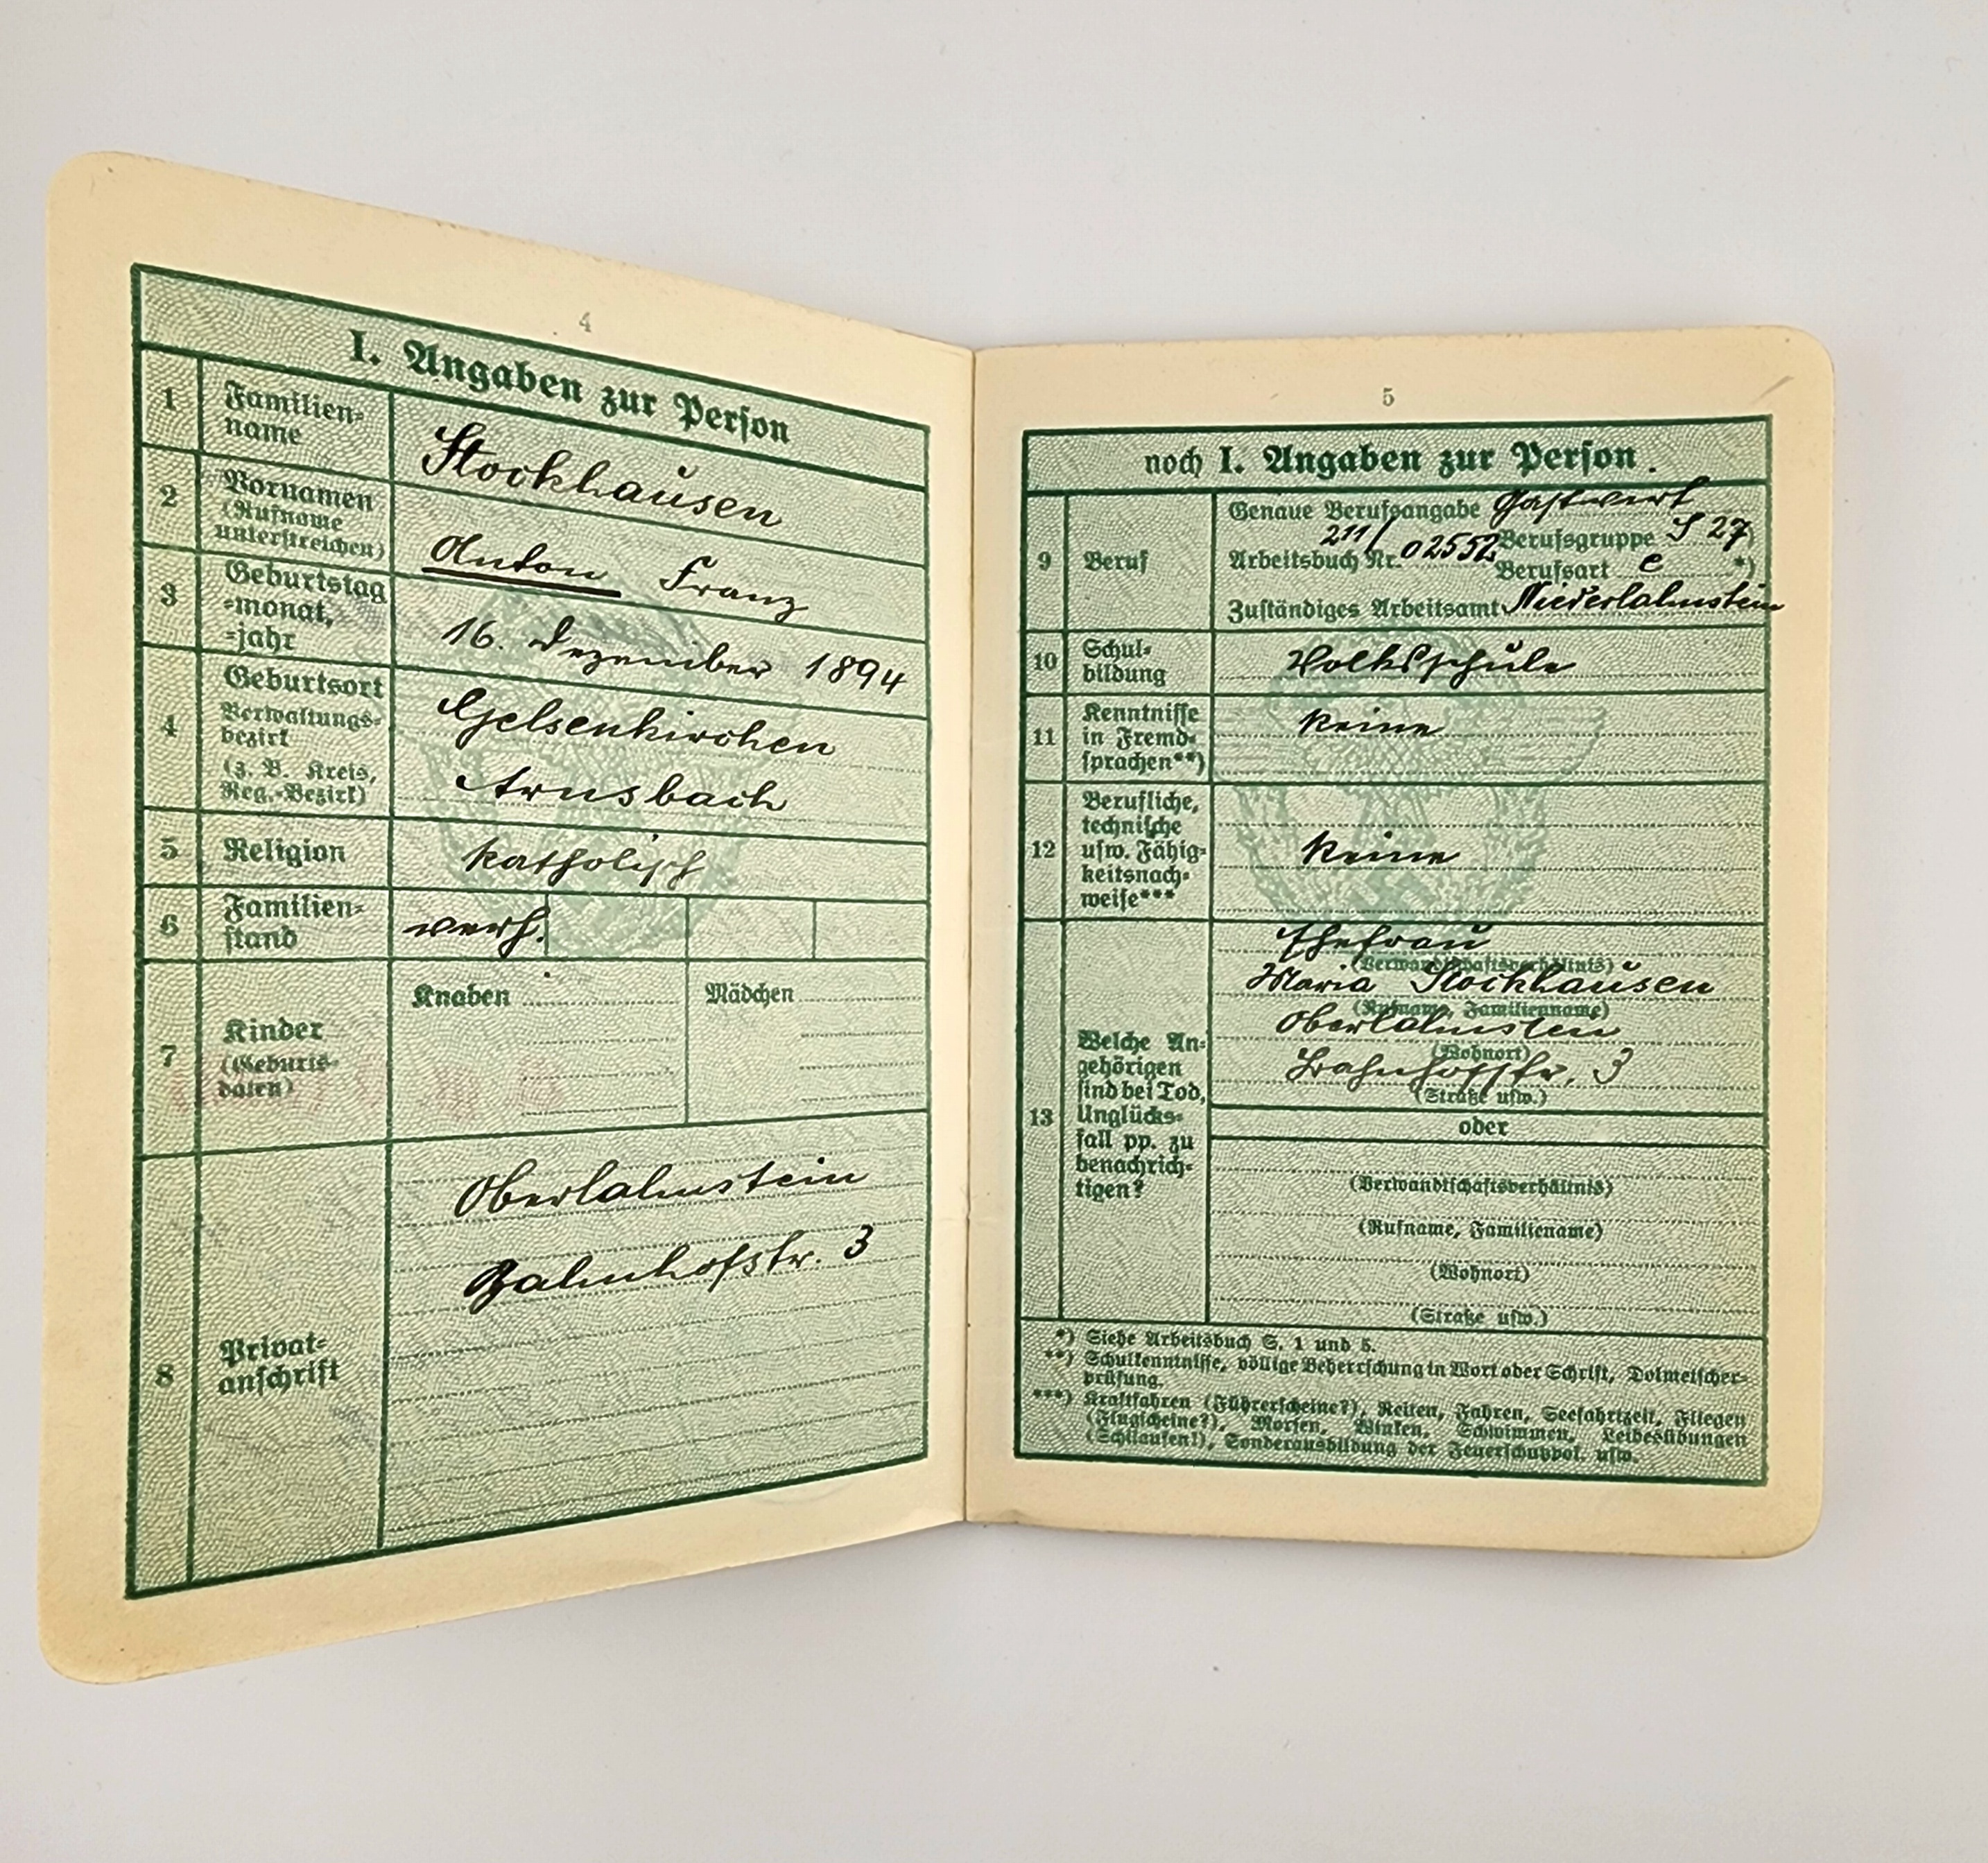 4
I. Angaben zur Person
1 Familien-
name
Stockhausen
2 Vornamen
(Rufname
unterstreichen)
Anton Franz
3 Geburtstag
-monat,
-jahr
16. Dezember 1894
4 Geburtsort
Verwaltungs-
bezirk
(z. B. Kreis,
Reg.-Bezirk)
Gelsenkirchen
Arnsbach
5 Religion
katholisch
6 Familien-
stand
verh.
7 Kinder
(Geburts-
daten)
Knaben
Mädchen
8 Privat-
anschrift
Oberlahnstein
Bahnhofstr. 3
5
noch I. Angaben zur Person.
9 Beruf
Genaue Berufsangabe Gastwirt
Berufsgruppe S 27
Arbeitsbuch Nr. 211/02552
Berufsart e *)
Zuständiges Arbeitsamt Niederlahnstein
10 Schul-
bildung
Volksschule
11 Kenntnisse
in Fremd-
sprachen**)
keine
12 Berufliche,
technische
usw. Fähig-
keitsnach-
weise***
keine
13 Welche An-
gehörigen
sind bei Tod,
Unglücks-
fall pp. zu
benachrich-
tigen?
Ehefrau
(Verwandtschaftsverhältnis)
Maria Stockhausen
(Rufname, Familienname)
Oberlahnstein
(Wohnort)
Bahnhofstr. 3
(Straße usw.)
oder
(Verwandtschaftsverhältnis)
(Rufname, Familiename)
(Wohnort)
(Straße usw.)
*) Siehe Arbeitsbuch S. 1 und 5.
**) Schulkenntnisse, völlige Beherrschung in Wort oder Schrift, Dolmetscher-
prüfung.
***) Kraftfahren (Führerscheine?), Reiten, Fahren, Seefahrtzeit, Fliegen
(Flugscheine?), Morsen, Winken, Schwimmen, Leibesübungen
(Schilaufen!), Sonderausbildung der Feuerschutzpol. usw.